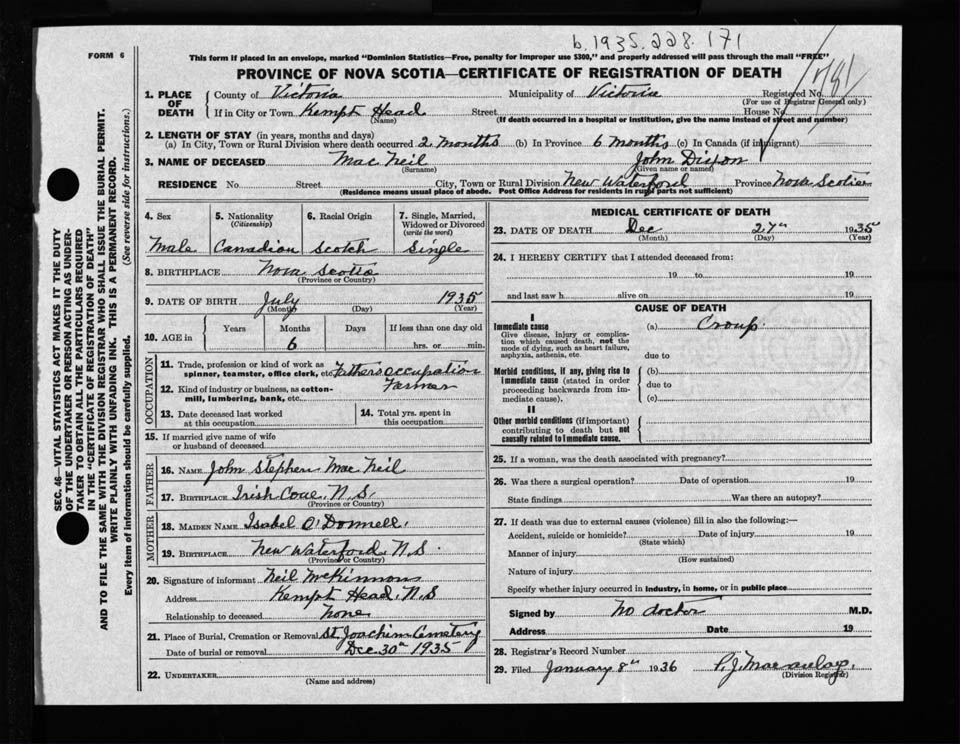 b.1935.228.171
FORM 6
This form if placed in an envelope, marked "Dominion Statistics—Free, penalty for improper use $300," and properly addressed will pass through the mail "FREE"
PROVINCE OF NOVA SCOTIA—CERTIFICATE OF REGISTRATION OF DEATH
1. PLACE OF DEATH
County of Victoria Municipality of Victoria Registered No.
(For use of Registrar General only)
If in City or Town Kempt Head Street House No.
(Name) (If death occurred in a hospital or institution, give the name instead of street and number)
2. LENGTH OF STAY (in years, months and days)
(a) In City, Town or Rural Division where death occurred 2 months (b) In Province 6 months (c) In Canada (if immigrant)
3. NAME OF DECEASED Mac Neil John Dixon
(Surname) (Given name or names)
RESIDENCE No. Street City, Town or Rural Division New Waterford Province Nova Scotia
(Residence means usual place of abode. Post Office Address for residents in rural parts not sufficient)
4. Sex
Male
5. Nationality
(Citizenship)
Canadian
6. Racial Origin
Scotch
7. Single, Married, Widowed or Divorced
(write the word)
Single
8. BIRTHPLACE Nova Scotia
(Province or Country)
9. DATE OF BIRTH July 1935
(Month) (Day) (Year)
10. AGE in
Years Months Days If less than one day old
6 hrs. or min.
OCCUPATION
11. Trade, profession or kind of work as
spinner, teamster, office clerk, etc. Fathers occupation
12. Kind of industry or business, as cotton- Farmer
mill, lumbering, bank, etc.
13. Date deceased last worked
at this occupation
14. Total yrs. spent in
this occupation
15. If married give name of wife
or husband of deceased
FATHER
16. NAME John Stephen Mac Neil
17. BIRTHPLACE Irish Cove, N.S.
(Province or Country)
MOTHER
18. MAIDEN NAME Isabel O'Donnell
19. BIRTHPLACE New Waterford, N.S.
(Province or Country)
20. Signature of informant Neil McKinnon
Address Kempt Head, N.S
Relationship to deceased None
21. Place of Burial, Cremation or Removal St. Joachim Cemetery
Date of burial or removal Dec 30th 1935
22. UNDERTAKER
(Name and address)
MEDICAL CERTIFICATE OF DEATH
23. DATE OF DEATH Dec 27th 1935
(Month) (Day) (Year)
24. I HEREBY CERTIFY that I attended deceased from:
19 to 19
and last saw h alive on 19
CAUSE OF DEATH
I
Immediate cause
Give disease, injury or complication which caused death, not the mode of dying, such as heart failure, asphyxia, asthenia, etc.
(a) Croup
due to
Morbid conditions, if any, giving rise to immediate cause (stated in order proceeding backwards from immediate cause).
(b)
due to
(c)
II
Other morbid conditions (if important) contributing to death but not causally related to immediate cause.
25. If a woman, was the death associated with pregnancy?
26. Was there a surgical operation? Date of operation 19
State findings Was there an autopsy?
27. If death was due to external causes (violence) fill in also the following:—
Accident, suicide or homicide? Date of injury 19
(State which)
Manner of injury
(How sustained)
Nature of injury
Specify whether injury occurred in industry, in home, or in public place
Signed by No doctor M.D.
Address Date 19
28. Registrar's Record Number
29. Filed January 8th 1936 P.J. Macaulay
(Division Registrar)
SEC. 46—VITAL STATISTICS ACT MAKES IT THE DUTY
OF THE UNDERTAKER OR PERSON ACTING AS UNDER-
TAKER TO OBTAIN ALL THE PARTICULARS REQUIRED
IN THE "CERTIFICATE OF REGISTRATION OF DEATH"
AND TO FILE THE SAME WITH THE DIVISION REGISTRAR WHO SHALL ISSUE THE BURIAL PERMIT.
WRITE PLAINLY WITH UNFADING INK. THIS IS A PERMANENT RECORD.
Every item of information should be carefully supplied. (See reverse side for instructions.)